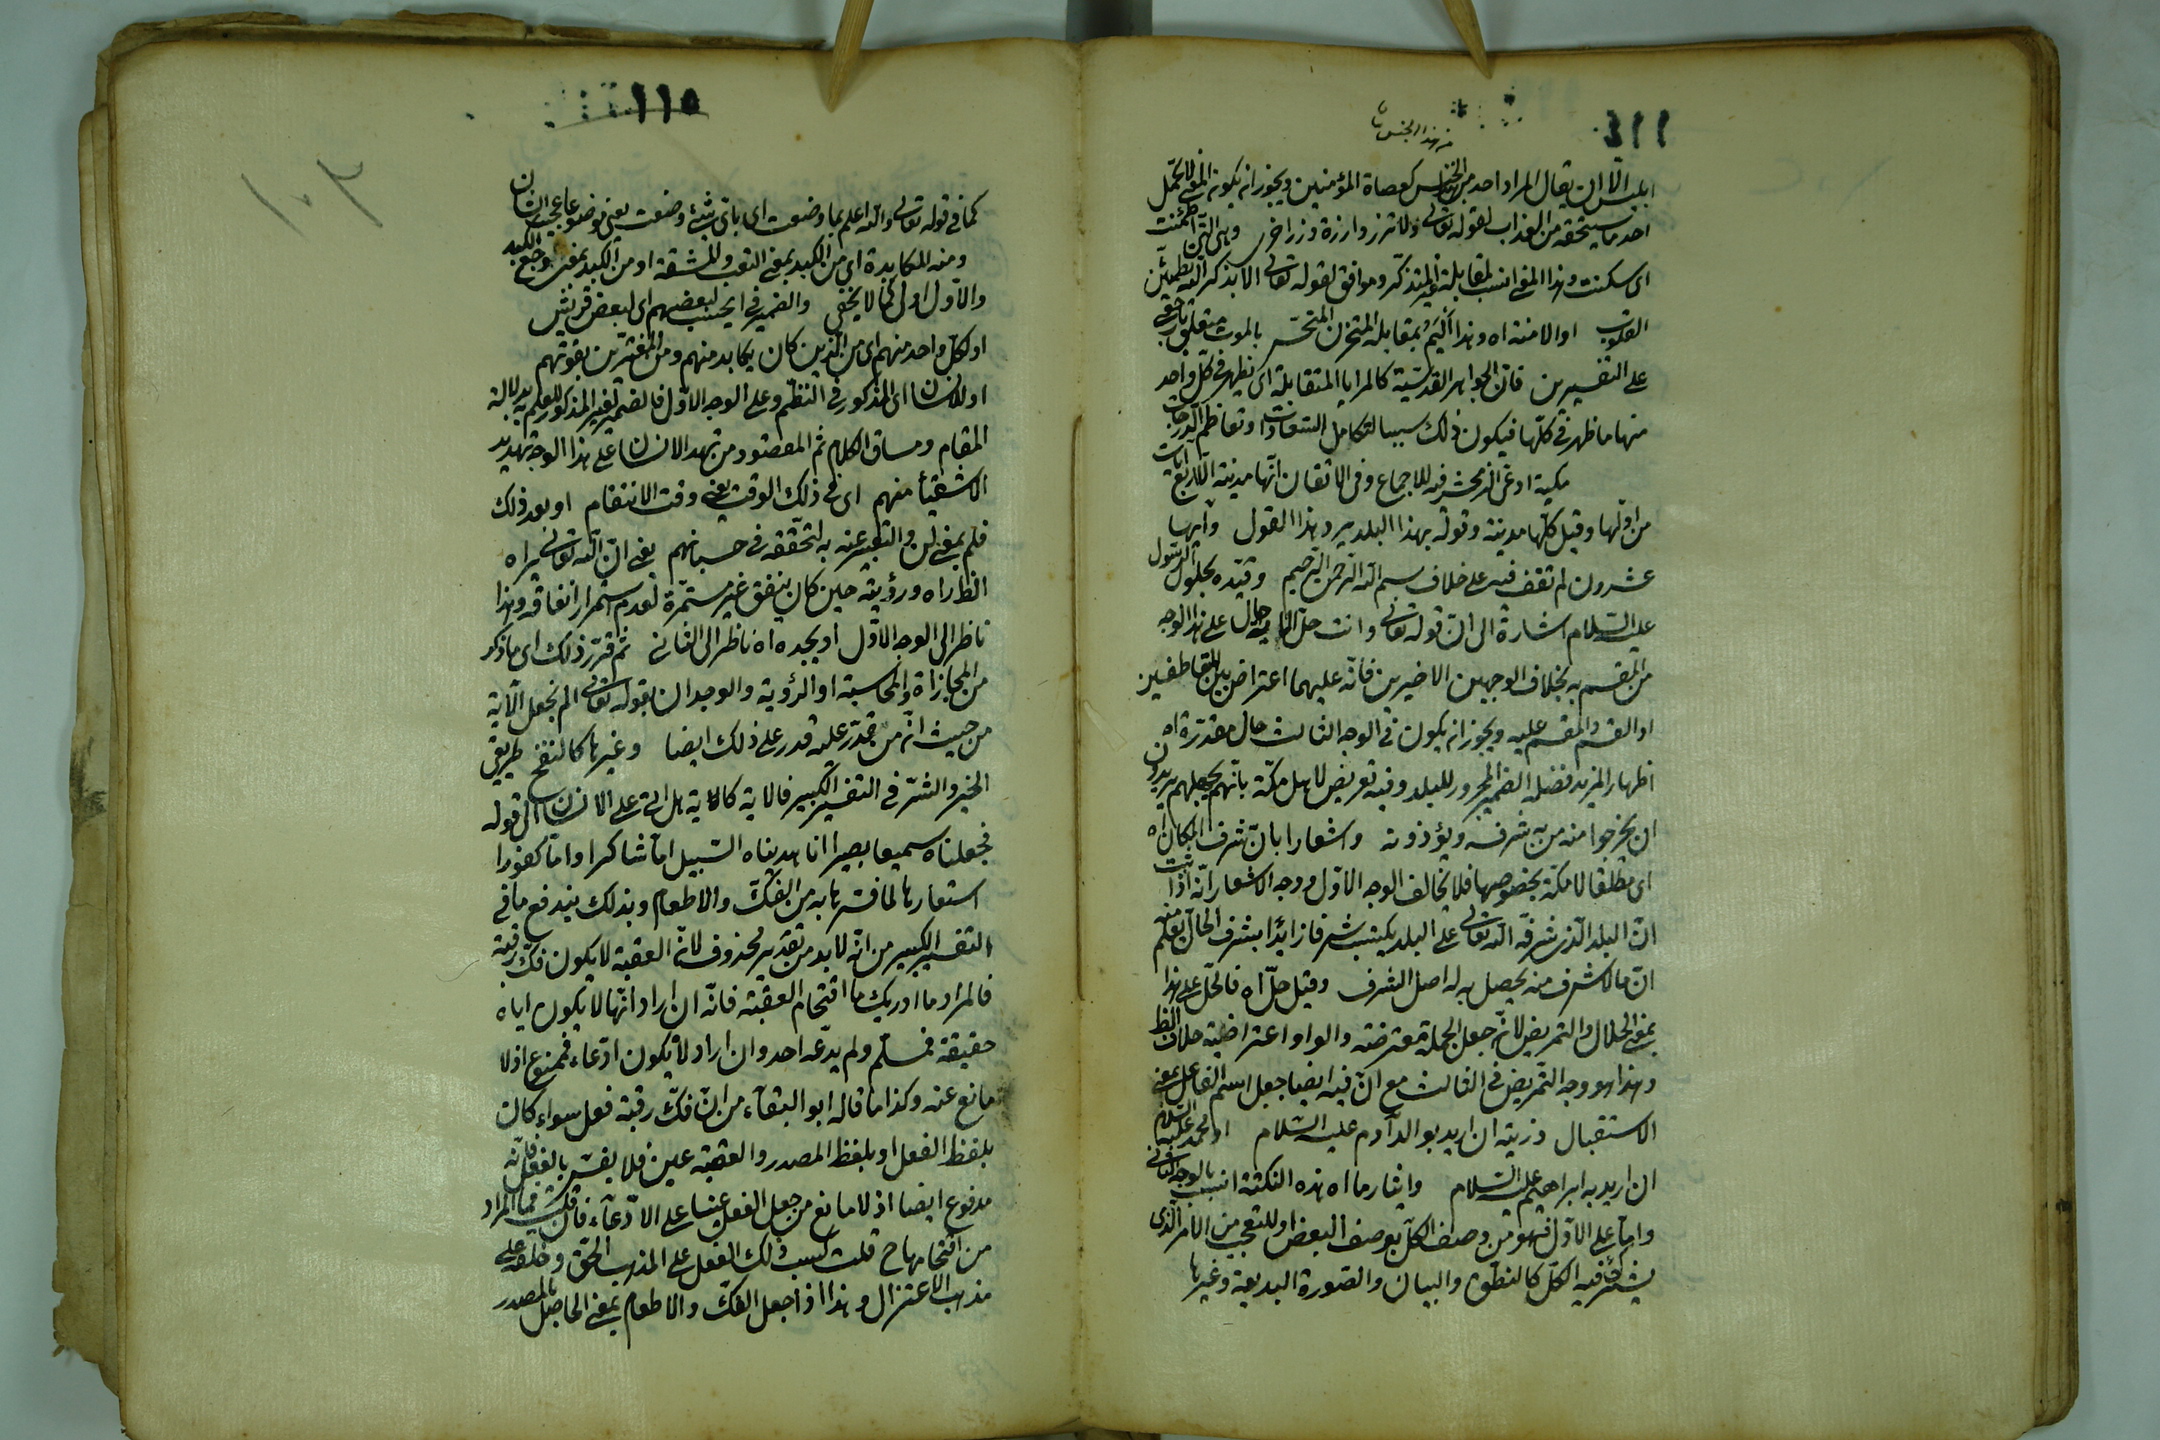 ١١٤
من هذا الجنس
ابليس الّا ان يقال المراد احد من الجنس كعصاة المؤمنين ويجوز ان يكون المعنى لا يتحمّل
احد ما يستحقه من العذاب لقوله تعالى ولا تزر وازرة وزر اخرى وهى التى اطمئنت
اى سكنت وهذا المعنى انسب لمقابلة المتذكر وموافق لقوله تعالى الا بذكر الله تطمئن
القلوب او الامنة اه وهذا بمقابلة المتحزن المتحسّر بالموت متعلق
على التفسيرين فان الجواهر القدسيّة كالمرايا المتقابلة اى يظهر فى كلّ واحد
منها ما ظهر فى كلّها فيكون ذلك سببا لتكامل السعادات وتعاظم الدرجات
مكية ادعى الزمخشرى فيه الاجماع وفى الاتقان انها مدنية الّا اربع آيات
من اوّلها وقيل كلّها مدنية وقوله بهذا البلد يردّ هذا القول وآيها
عشرون لم نقف فيه على خلاف بسم الله الرحمن الرحيم وقيّده بحلول الرسول
عليه السّلام اشارة الى انّ قوله تعالى وانت حلّ حال على هذا الوجه
من المقسم به بخلاف الوجهين الاخيرين فانّه عليهما اعتراض بين المتعاطفين
او القسم والمقسم عليه ويجوز ان يكون فى الوجه الثالث حال مقدّرة اه
اظهارا لمزيد فضله الضمير المجرور للبلد وفيه تعريض لاهل مكّة بانّهم لجهلهم يريدون
ان يخرجوا منه من به شرفه ويؤذونه واشعارا بانّ شرف المكان اه
اى مطلقا لا مكّة بخصوصها فلا يخالف الوجه الاوّل ووجه الاشعار انّه اذا
انّ البلد الّذى شرفه الله تعالى على البلد يكتسب شرفا زائدا بشرف الحالّ يعلم منه
انّ ما لا شرف منه يحصل به له اصل الشرف وقيل حلّ اه فالحلّ على هذا
بمعنى الحلال والتمريض لانّ جعل الجملة معترضة والواو اعتراضية خلاف الظ
وهذا هو وجه التمريض فى الثالث مع انّ فيه ايضا جعل اسم الفاعل بمعنى
الاستقبال ذريته ان اريد بوالد آدم عليه السّلام او محمد عليه السّلام
ان اريد به ابراهيم عليه السّلام وايثار ما اه هذه النكتة انسب بالوجه الثانى
وامّا على الاوّل فهو من وصف الكلّ بوصف البعض او للتعجب من الامر الّذى
يشترك فيه الكلّ كالنطق والبيان والصّورة البديعة وغيرها
١١٥
١٠٣
كما فى قوله تعالى والله اعلم بما وضعت اى باىّ شئ وضعت يعنى موضوعا عجيب الشان
ومنه المكابدة اى من الكبد بمعنى التعب والمشقة او من الكبد بمعنى وجع الكبد
والاوّل اولى كما لا يخفى والضمير فى ايحسب لبعضهم اى لبعض قريش
او لكلّ واحد منهم اى من الّذين كان يكابد منهم ومن المغترّين بقوتهم
او للانسان اى المذكور فى النظم وعلى الوجه الاوّل فالضمير لغير المذكور للعلم به بدلالة
المقام ومساق الكلام ثم المقصود من تهديد الانسان على هذا الوجه تهديد
الاشقياء منهم اى فى ذلك الوقت يعنى وقت الانتقام او بعد ذلك
فلم بمعنى لن والتعبير عنه به لتحقّقه فى حسبانهم يعنى انّ الله تعالى يراه
الظ راه ورؤيته حين كان ينفق غير مستمرّة لعدم استمرار انفاقه وهذا
ناظر الى الوجه الاوّل او يجده اه ناظر الى الثانى ثم قرّر ذلك اى ما ذكر
من المجازاة والمحاسبة او الرؤية والوجدان بقوله تعالى الم نجعل الآية
من حيث انّه من قدر عليه قدر على ذلك ايضا وغيرها كالنفخ طريقى
الخير والشرّ فى التفسير الكبير فالاية كالاية هل اتى على الانسان الى قوله
فجعلناه سميعا بصيرا انا هديناه السّبيل امّا شاكرا وامّا كفورا
استعارها لما فسرها به من الفكّ والاطعام وبذلك يندفع ما فى
التفسير الكبير من انّه لا بد من تقدير محذوف لانّ العقبة لا يكون فكّ رقبة
فالمراد ما ادريك ما اقتحام العقبة فانّه ان اراد انّها لا يكون اياه
حقيقة فمسلّم ولم يدّعه احد وان اراد لا يكون ادّعاء فممنوع اذ لا
مانع عنه وكذا ما قاله ابو البقآء من انّ فكّ رقبة فعل سواء كان
بلفظ الفعل او بلفظ المصدر والعقبة عين فلا يفسّر بالفعل فانّه
مدفوع ايضا اذ لا مانع من جعل الفعل عينا على الادّعآء فان قلت فما المراد
من اقتحامها ح قلت كسب ذلك الفعل على المذهب الحقّ وخلقه على
مذهب الاعتزال وهذا اذا جعل الفكّ والاطعام بمعنى الحاصل بالمصدر